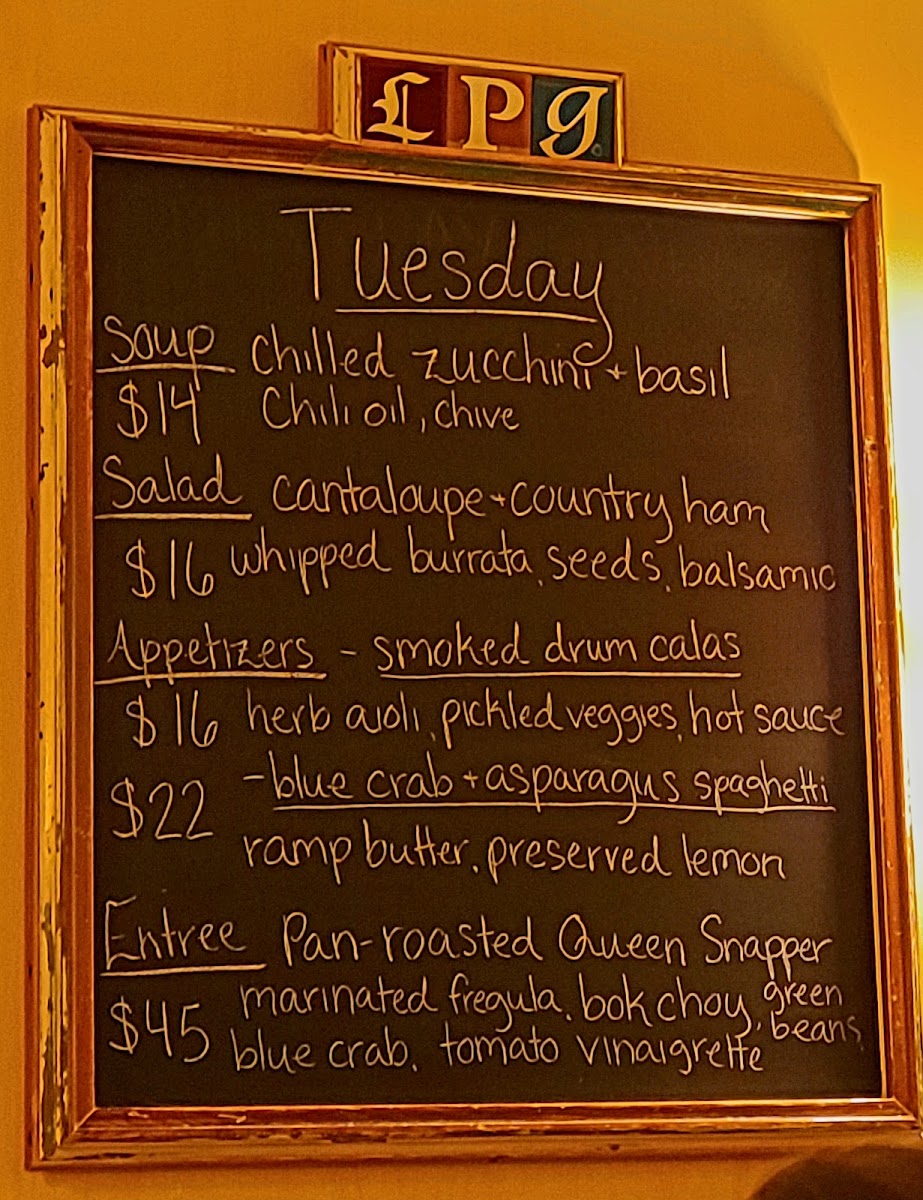 LPg
Tuesday
Soup Chilled zucchini + basil
$14 Chili oil, chive
Salad cantaloupe + country ham
$16 whipped burrata, seeds, balsamic
Appetizers - smoked drum calas
$16 herb aioli, pickled veggies, hot sauce
$22 - blue crab + asparagus spaghetti
ramp butter, preserved lemon
Entree Pan-roasted Queen Snapper
$45 marinated fregula, bok choy, green beans,
blue crab, tomato vinaigrette